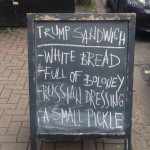 TRUMP SANDWICH
-WHITE BREAD
-FULL OF BOLONEY
-RUSSIAN DRESSING
A SMALL PICKLE